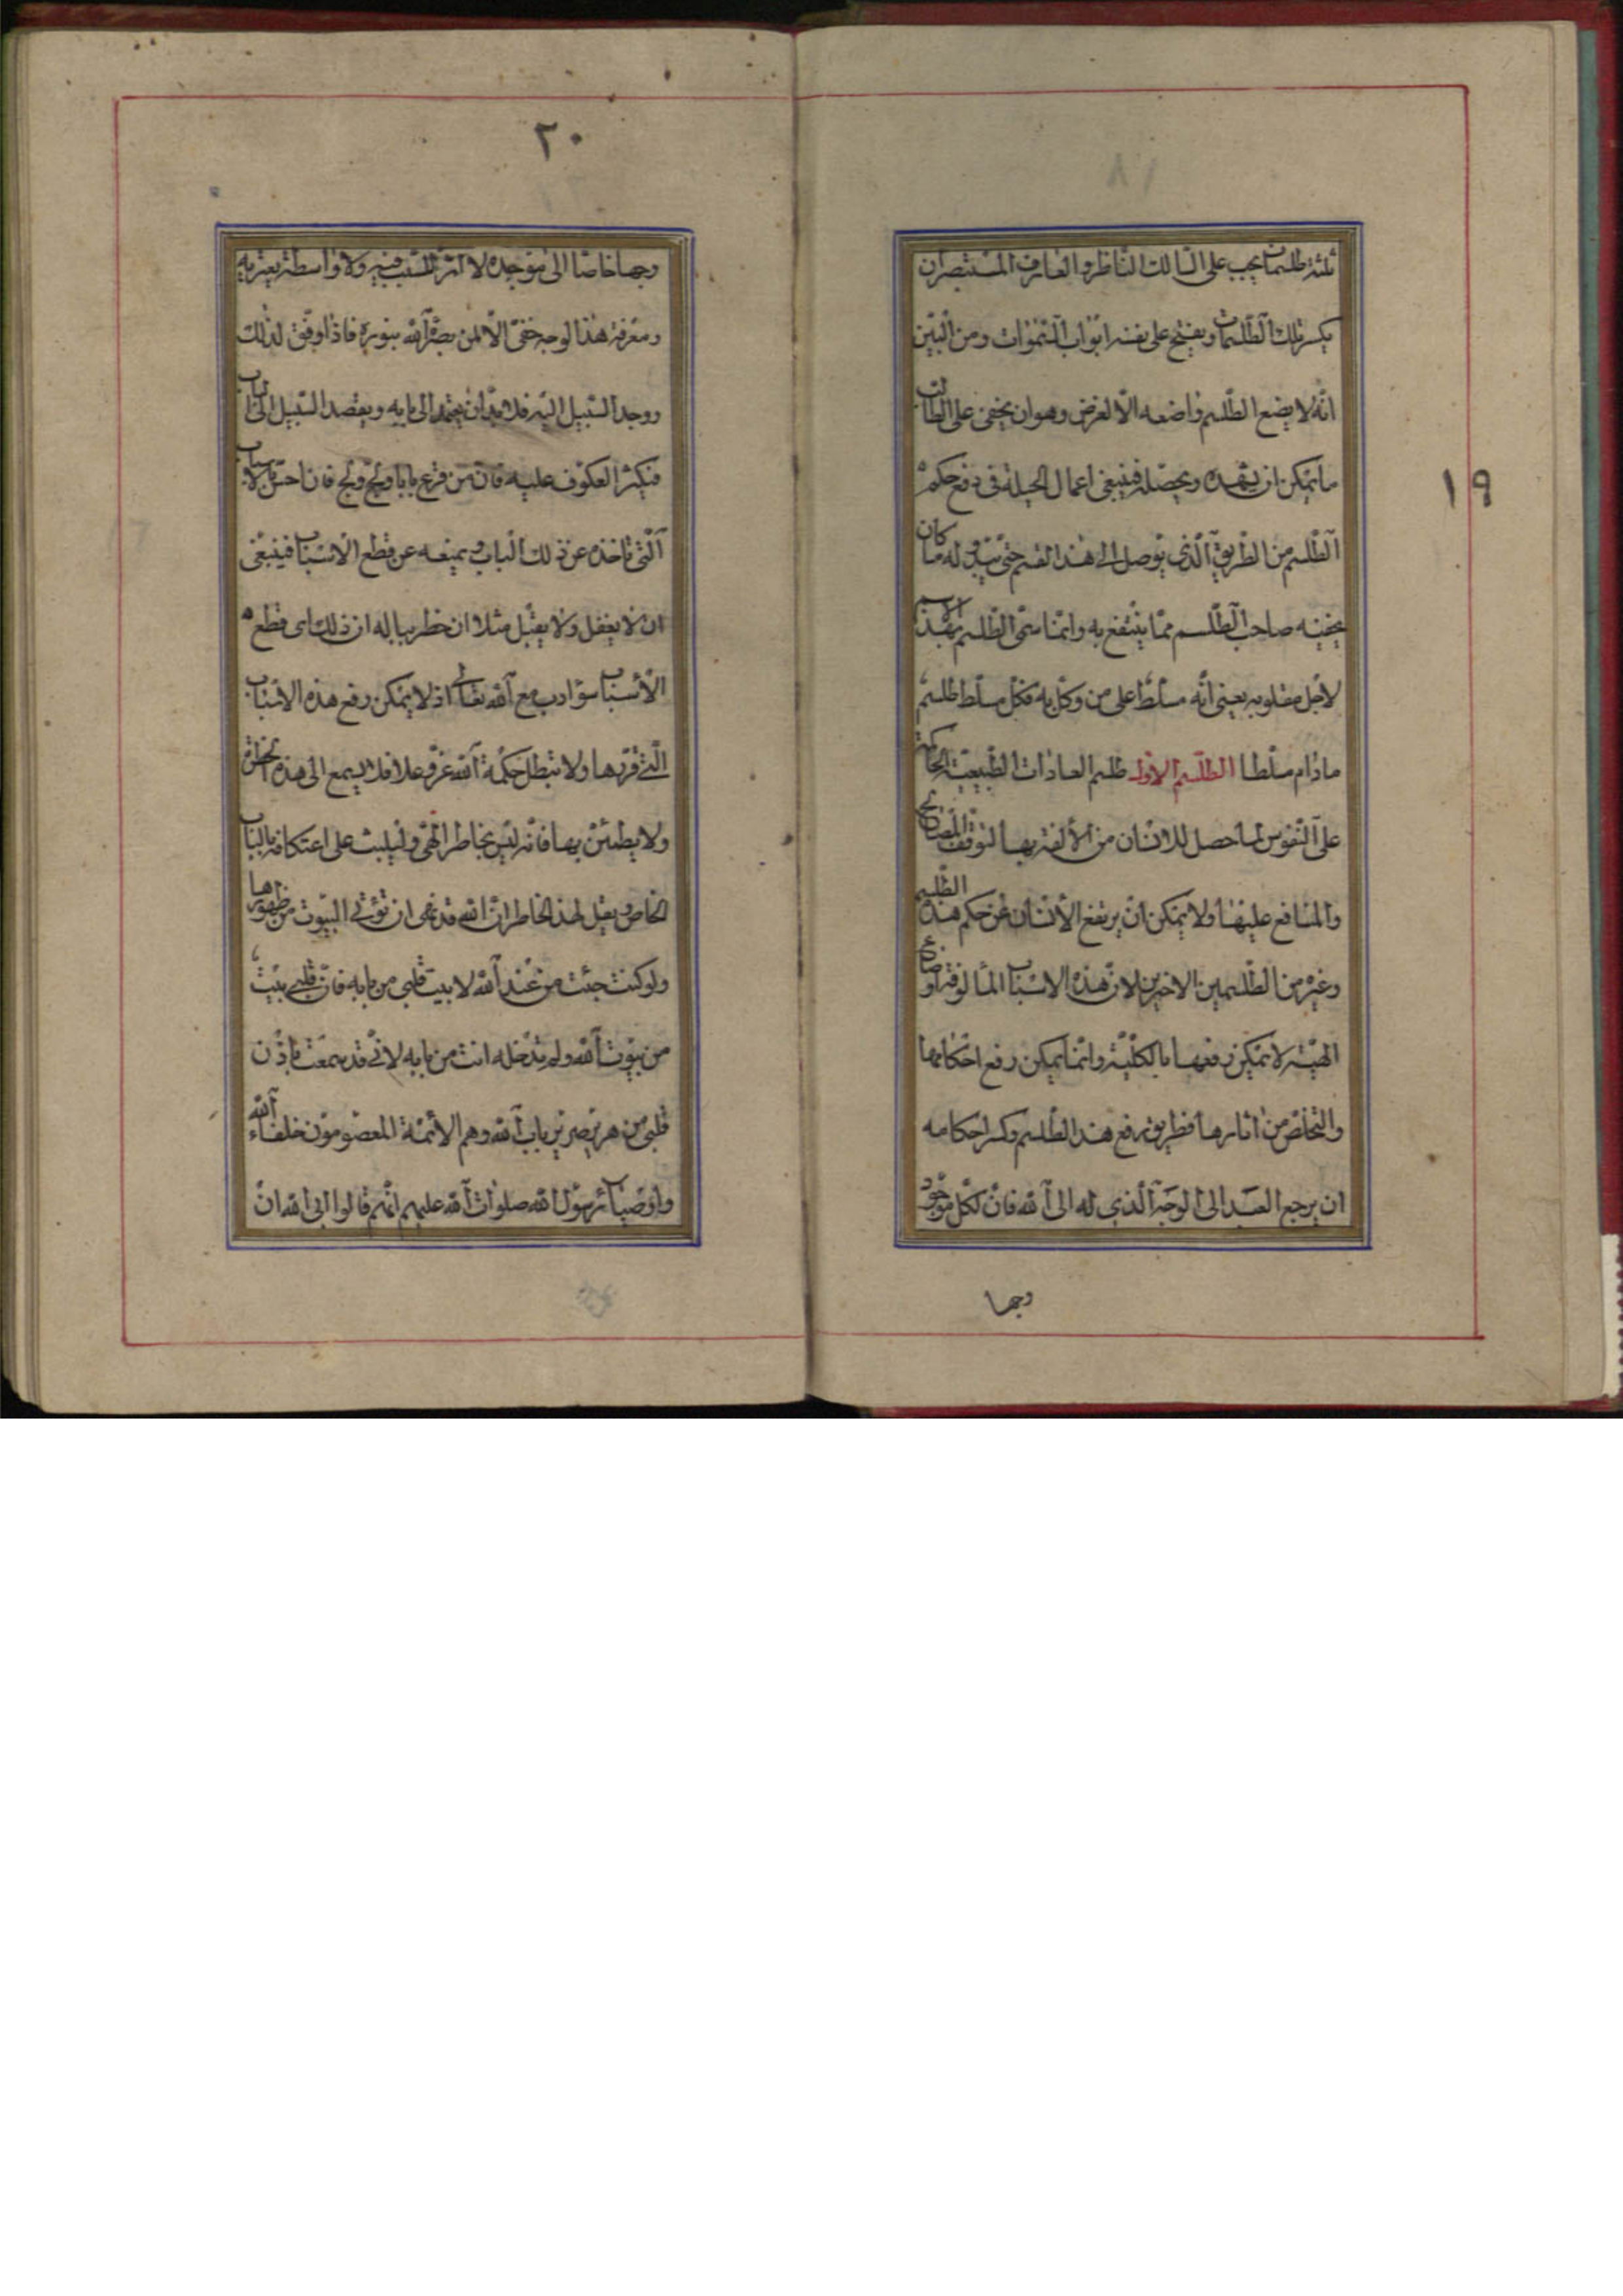 ١٩
ثلثة طلسمات يجب على السالك الناظر والعارف المستبصر ان
يكسر تلك الطلسمات ويفتح على نفسه ابواب السموات ومن البين
انه لا يضع الطلسم واضعه الا لغرض وهو ان يخفى على الطالب
ما يمكن ان يشهده ويحصله فينبغى اعمال الحيلة فى دفع حكم
الطلسم من الطريق الذى يوصل الى هذا القسم حتى يبدو له ما كان
يخفيه صاحب الطلسم مما ينتفع به وانما سمى الطلسم بهذا الاسم
لاجل مقلوبه يعنى انه مسلط على من وكل به فكل مسلط طلسم
مادام مسلطا الطلسم الاول طلسم العادات الطبيعية الحاكمة
على النفوس لما حصل للانسان من الألفة بها لتوقف المصالح
والمنافع عليها ولا يمكن ان يرتفع الأنسان عن حكم هذه الطلسم
وغيره من الطلسمين الاخيرين لان هذه الاسباب المألوفة اوضاع
الهية لا يمكن رفعها بالكلية وانما يمكن رفع احكامها
والتخلص من اثارها فطريق رفع هذا الطلسم وكسر احكامه
ان يرجع العبد الى الوجه الذى له الى الله فان لكل موجود
وجها
٢٠
وجها خاصا الى موجده لا اثر للسبب فيه ولا واسطة يعتريه
ومعرفة هذا الوجه خفى الا لمن بصره الله بنوره فاذا وفق لذلك
ووجد السبيل اليه فلا بد ان يعتمد الى بابه ويقصد السبيل الى الباب
فيكثر العكوف عليه فان من قرع بابا ولج ولج فان احس بالاسباب
التى تاخذه عن ذلك الباب و يمنعه عن قطع الاسباب فينبغى
ان لا يغفل ولا يقبل مثلا ان خطر بباله ان ذلك اى قطع
الأسباب سؤ ادب مع الله تعالى اذ لا يمكن رفع هذه الاسباب
التى قررها ولا تبطل حكمة الله عز وعلا فلا يسمع الى هذه الخطرة
ولا يطمئن بها فانه ليس بخاطر الهى وليلبث على اعتكافه بالباب
الخاص ويقل لهذا الخاطر ان الله قد نهى ان تؤتى البيوت من ظهورها
ولو كنت جئت من عند الله لا بيت قلبى من بابه فان قلبى بيت
من بيوت الله ولم تدخله انت من بابه لانى قد سمعت باذن
قلبى من هر بصير بباب الله وهم الأئمة المعصومون خلفاء الله
واوصياء رسول الله صلوات الله عليهم انهم قالوا ابى الله ان